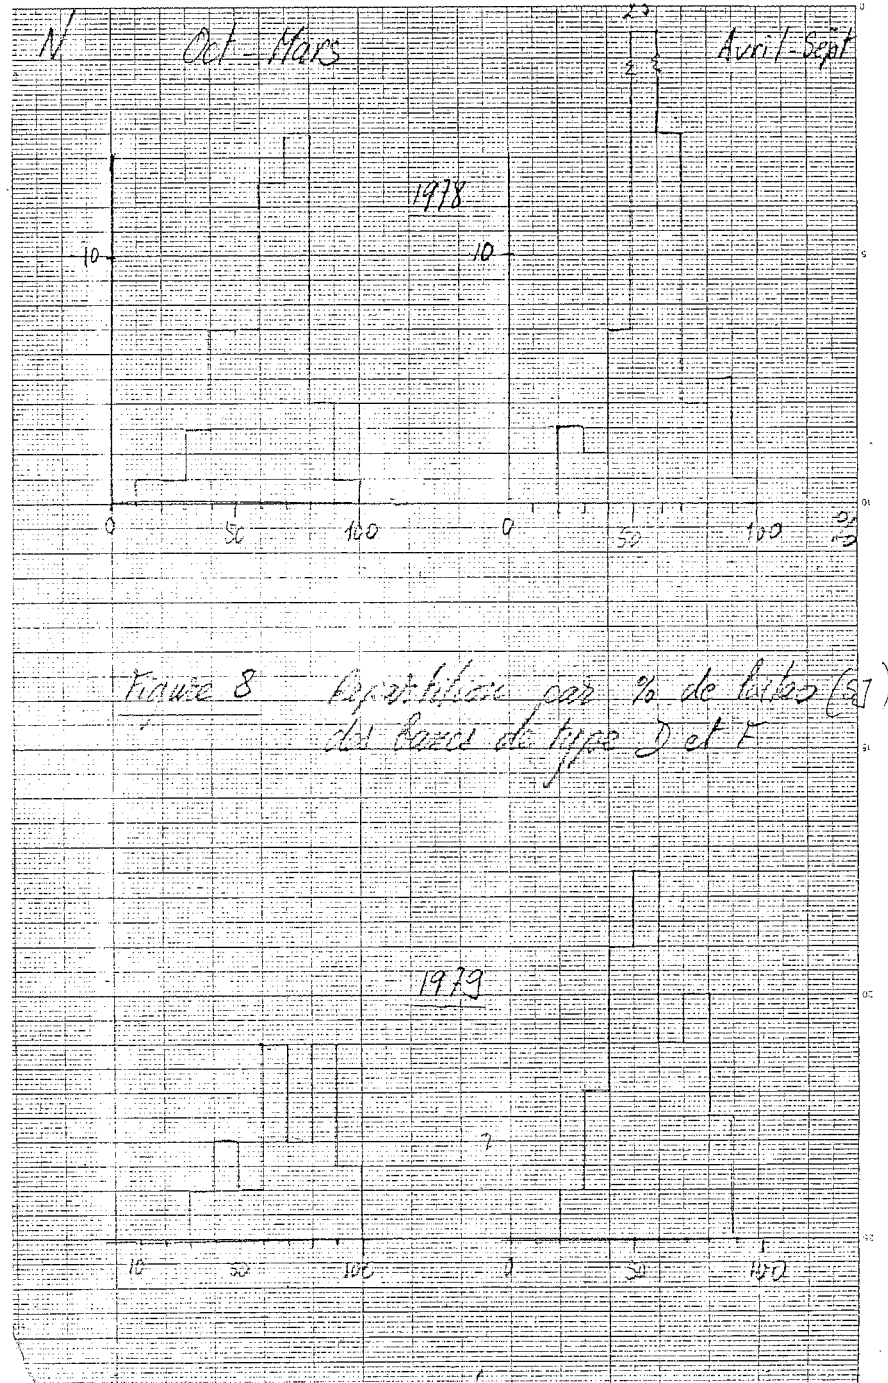 N Oct-Mars 25 Avril-Sept
1978
10 10
0 50 100 0 50 100 %
Figure 8 Repartition par % de listao (SJ)
des bancs de type D et F
1979
10 50 100 0 50 100